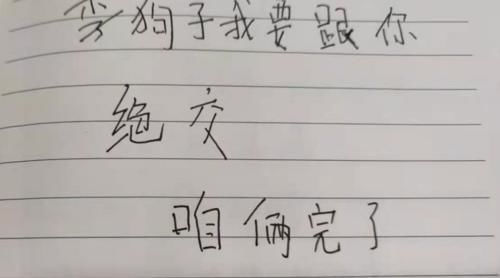 狗子我要跟你
绝交
咱俩完了